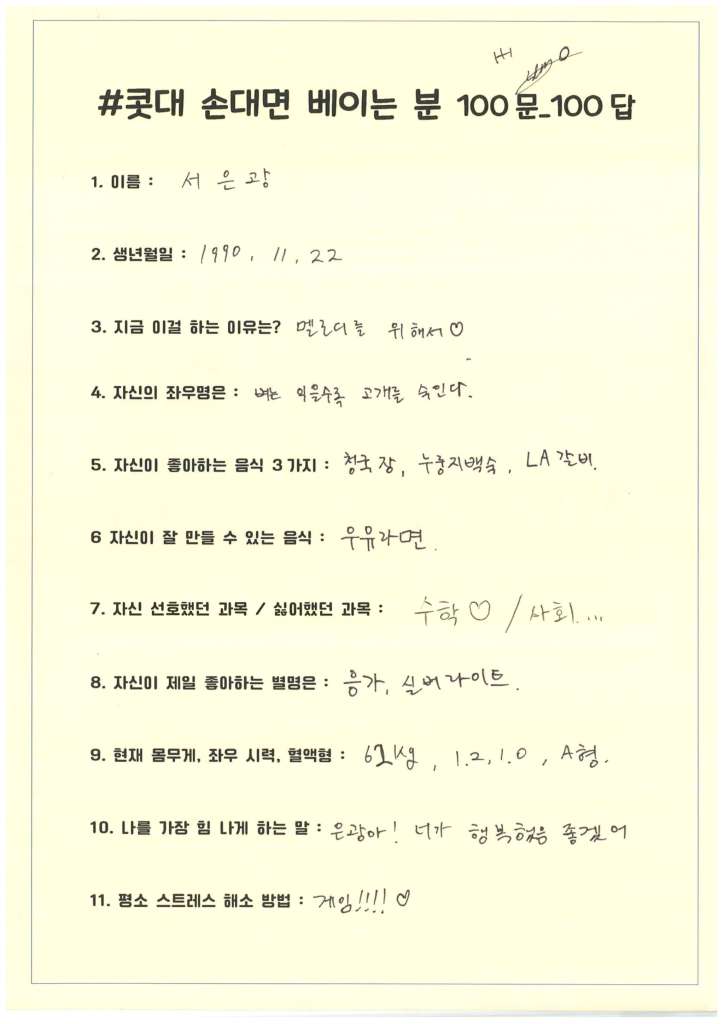 #콧대 손대면 베이는 분 100문_100답
1. 이름 : 서 은 광
2. 생년월일 : 1990. 11. 22
3. 지금 이걸 하는 이유는? 멜로디를 위해서♡
4. 자신의 좌우명은 : 벼는 익을수록 고개를 숙인다.
5. 자신이 좋아하는 음식 3가지 : 청국장, 누룽지백숙, LA갈비.
6 자신이 잘 만들 수 있는 음식 : 우유라면.
7. 자신 선호했던 과목 / 싫어했던 과목 : 수학♡ / 사회...
8. 자신이 제일 좋아하는 별명은 : 응가, 실버라이트.
9. 현재 몸무게, 좌우 시력, 혈액형 : 62kg, 1.2, 1.0, A형.
10. 나를 가장 힘 나게 하는 말 : 은광아! 너가 행복했음 좋겠어
11. 평소 스트레스 해소 방법 : 게임!!!! ♡